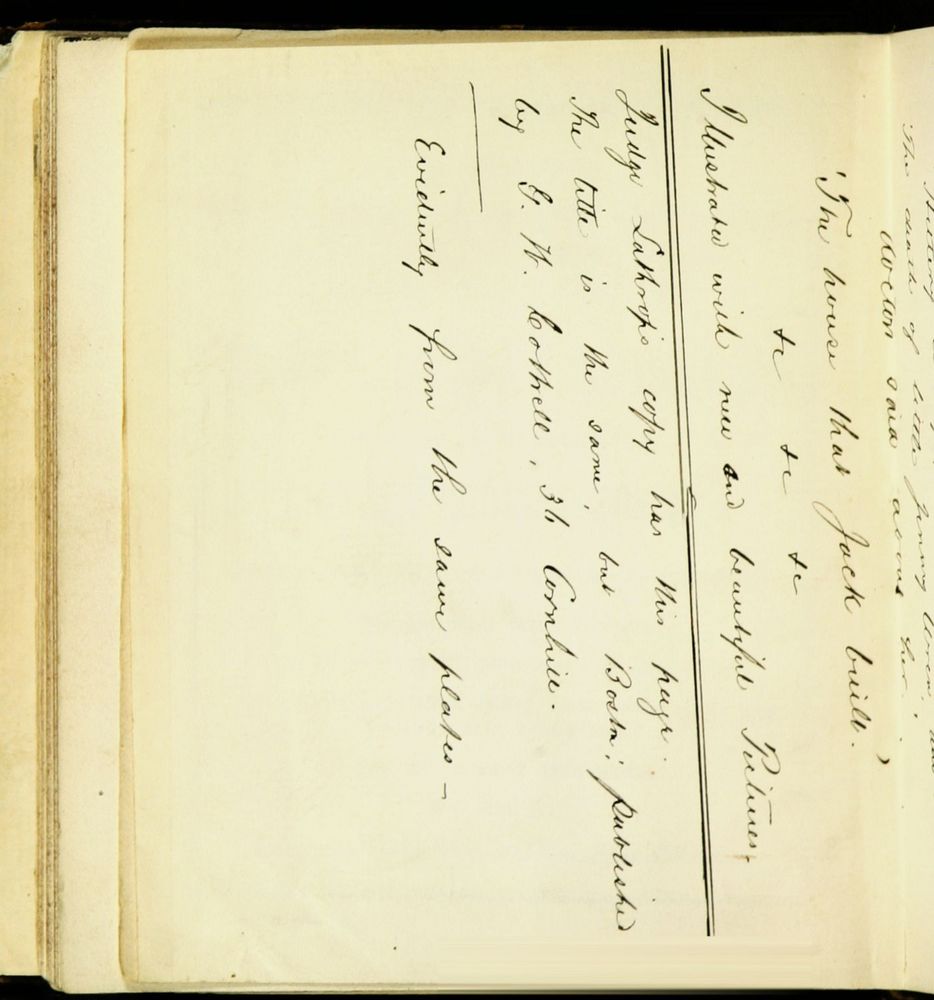 The death of little Jenny Wren,
doctor said about her.
'The house that Jack built.
&c &c &c
Illustrated with new and beautiful Pictures,
Judge Lathrop's copy has this page.
The title is the same, but Boston: published
by G. W. Cottrell, 36 Cornhill.
Evidently from the same plates —